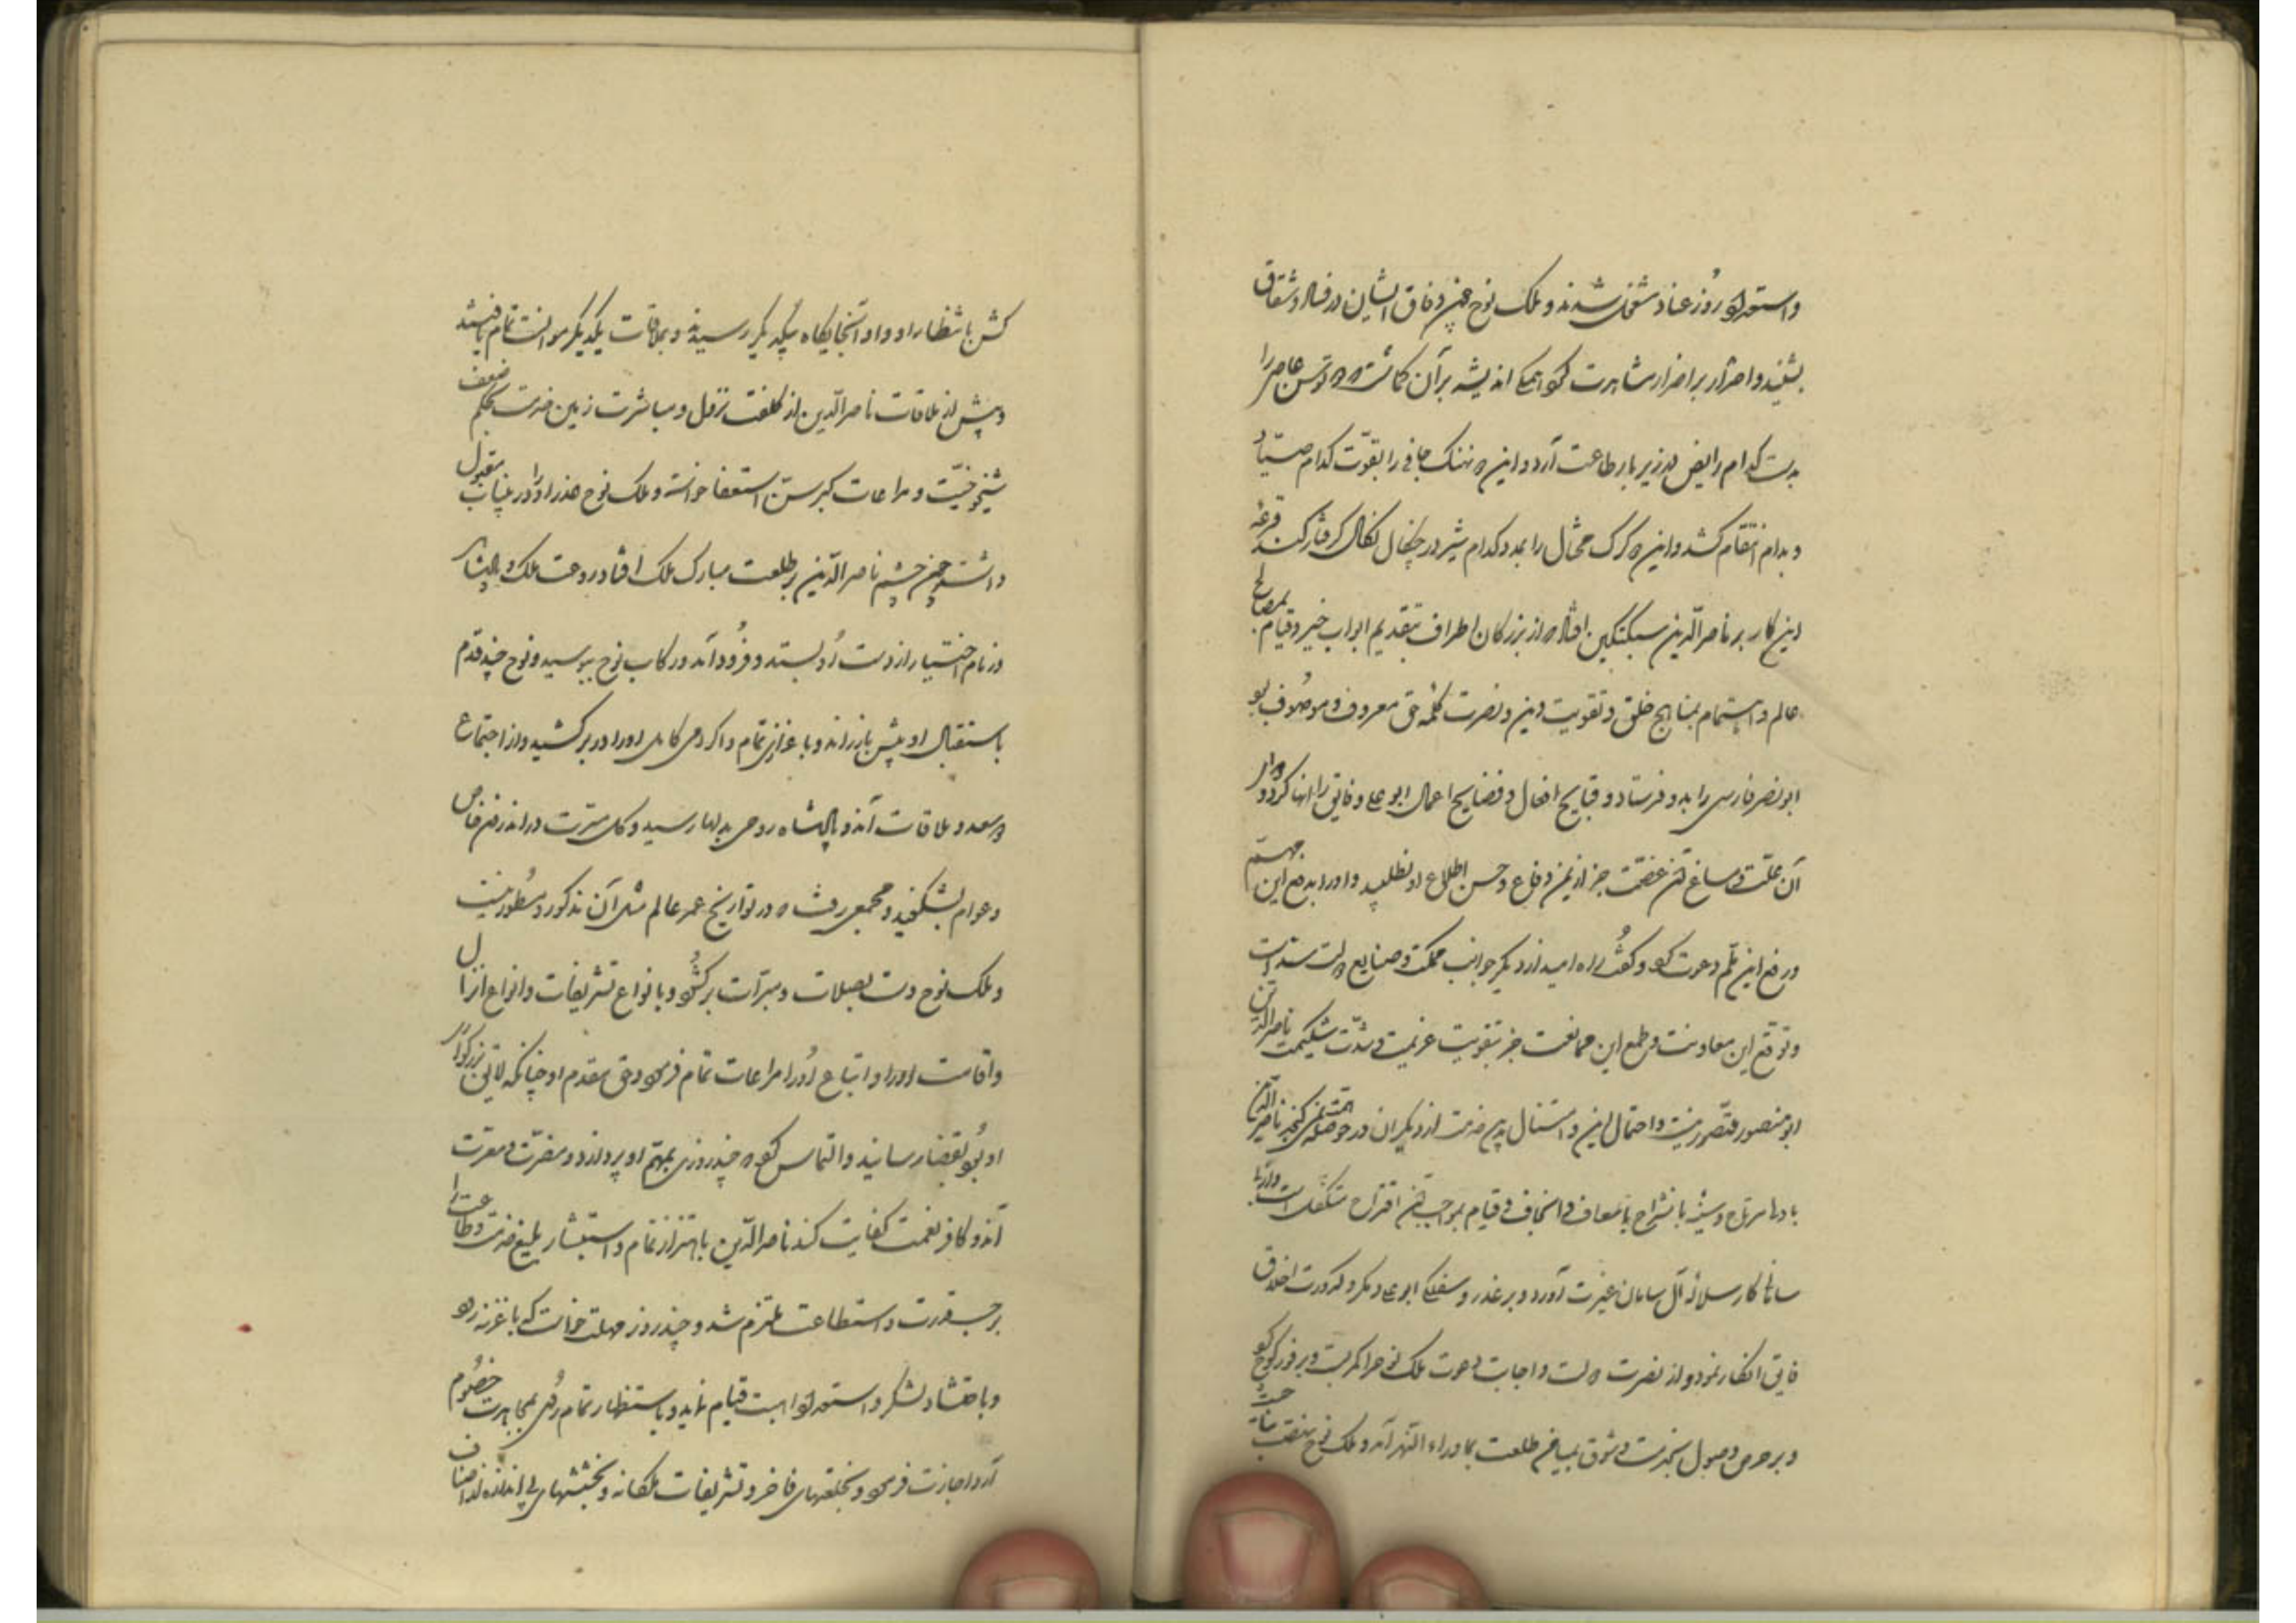 واستعداد روز عناد مشغول شدند و ملک نوح چون وفاق ایشان در فساد و شقاق
بشنید و اصرار بر اضرار مشاهدت کرد همگی اندیشه بر آن گماشت که توسن عاصی را
بدست کدام رایض در زیر بار طاعت آرد و این نهنگ جافی را بقوت کدام صیاد
بدام انتقام کشد و این گرگ محتال را بمدد کدام شیر در چنگال نکال گرفتار کند قرعه
این کار بر ناصرالدین سبکتگین افتاد که از بزرگان اطراف بتقدیم ابواب خیر و قیام بمصالح
عالم و اهتمام بمناهج خلق و تقویت دین و نصرت کلمه حق معروف و موصوف بود
ابونصر فارسی را بدو فرستاد و قبایح افعال و فضایح اعمال ابو علی و فایق را انها کرد و دوار
آن علت و مساغ آن غصت جز از یمن دفاع و حسن اطلاع او نطلبید و او را بدفع این مهم
ورفع این ملم دعوت کرد و گفت راه امید از دیگر جوانب مملکت و صنایع دولت منسد است
و توقع این معاونت و طمع این ممانعت جز بتقویت عزیمت و شدت شکیمت ناصرالدین
ابو منصور متصور نیست و احتمال این و استقلال بدین خدمت از دیگران در حوصله همت نمی گنجد ناصرالدین
با دلها مرتاح و سینه با نشراح باسعاف و انجاف و قیام بمواجب آن اقتراح متکفل
سامان کار سلاله آل سامان غیرت آورد و بر غدر و سفلگی ابو علی و مکر و کدورت اخلاق
فایق انکار نمود و از نصرت دولت و اجابت دعوت ملک نوح را کمر بست و بر فور کوچ کرد
و بر حرص وصول بخدمت و شوق بمیامن طلعت بماوراء النهر آمد و ملک نوح
کش بانتظار او و او آنجایگاه بیکدیگر رسیدند و بملاقات یکدیگر موانست تمام یافتند
و پیش از ملاقات ناصرالدین از کلفت نزول و مباشرت زمین خدمت بحکم ضعف
شیخوخیت و مراعات کبر سن استعفا خواسته و ملک نوح عذر او را در این باب مقبول
داشته چون چشم ناصرالدین بر طلعت مبارک ملک افتاد روعت ملک و
زمام اختیار از دست او بستد و فرود آمد و رکاب نوح ببوسید و نوح چند قدم
باستقبال او پیش باز راند و با عزازی تمام و اکرامی کامل او را در بر کشید و از اجتماع
دو سعد و ملاقات آن دو پادشاه روحی بدلها رسید و گل مسرت در اندرون خاص
و عوام بشکفید و مجمعی رفت که در تواریخ عمر عالم مثل آن مذکور و مسطور نیست
و ملک نوح دست بصلات و مبرات برگشود و بانواع تشریفات و انواع انزال
و اقامت او را و اتباع او را مراعات تمام فرمود و حق مقدم او چنانکه لایق بزرگوار
او بود بقضا رسانید و التماس کرد که چند روزی بمهم او پردازد و مضرت و معرت
آن دو کافر نعمت کفایت کند ناصرالدین باهتزاز تمام و استبشار بلیغ خدمت و طاعت را
بر حسب قدرت و استطاعت ملتزم شد و چند روز مهلت خواست که با غزنه رود
و باحتشاد لشکر و استعداد اهبت قیام نماید و باستظهار تمام روی بمجاهرت خصوم
آرد اجازت فرمود و بخلعتهای فاخر و تشریفات ملکانه و بخششهای بی اندازه او اصناف